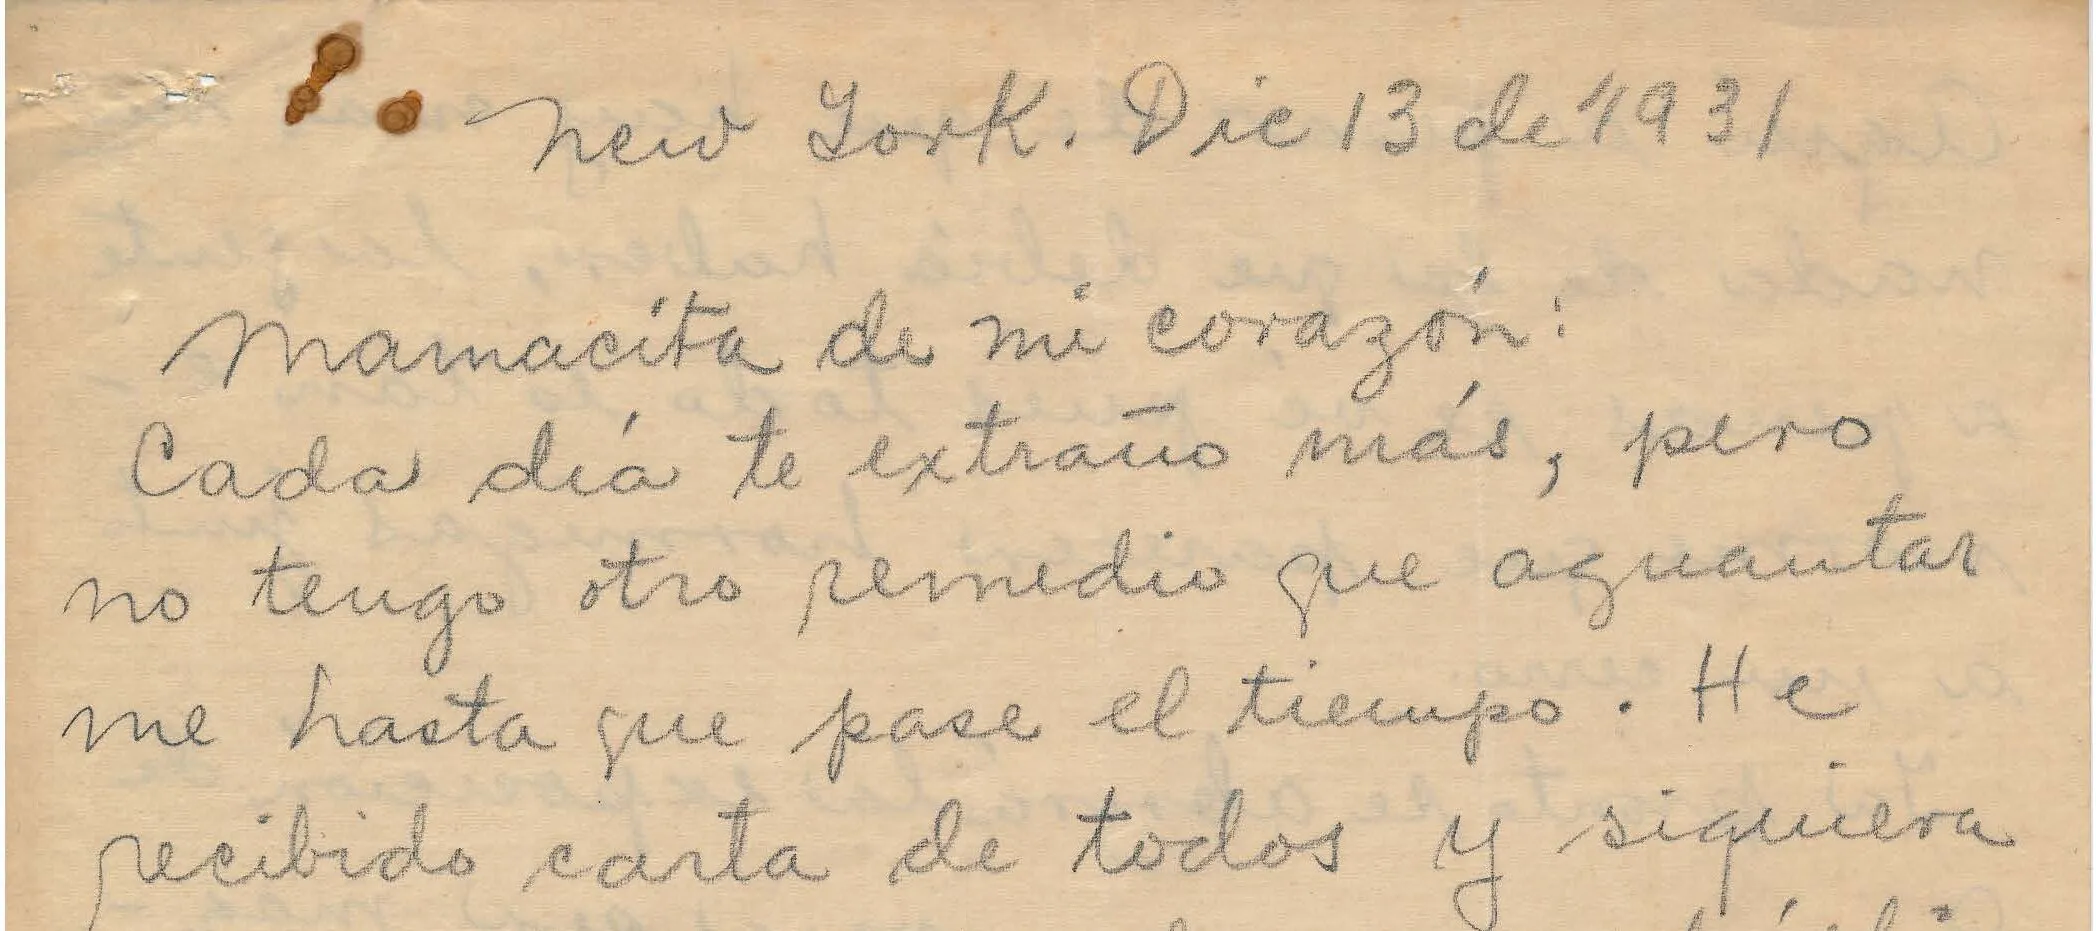 New York. Dic 13 de 1931
Mamacita de mi corazón:
Cada día te extraño más, pero
no tengo otro remedio que aguantar
me hasta que pase el tiempo. He
recibido carta de todos y siquiera